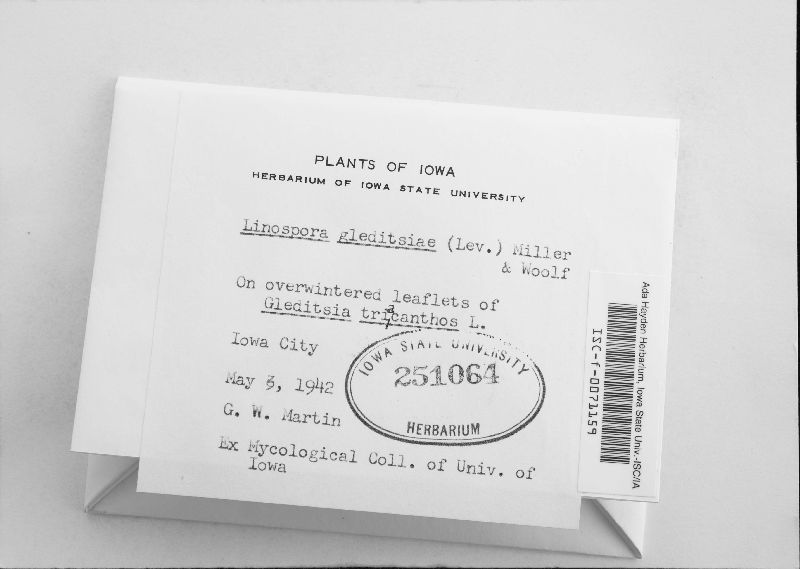 PLANTS OF IOWA
HERBARIUM OF IOWA STATE UNIVERSITY
Linospora gleditsiae (Lev.) Miller
& Woolf
On overwintered leaflets of
Gleditsia tricanthos L.
Iowa City
May 3, 1942
G. W. Martin
Ex Mycological Coll. of Univ. of
Iowa
IOWA STATE UNIVERSITY
251064
HERBARIUM
Ada Hayden Herbarium, Iowa State Univ.-ISC/IA
ISC-f-0071159